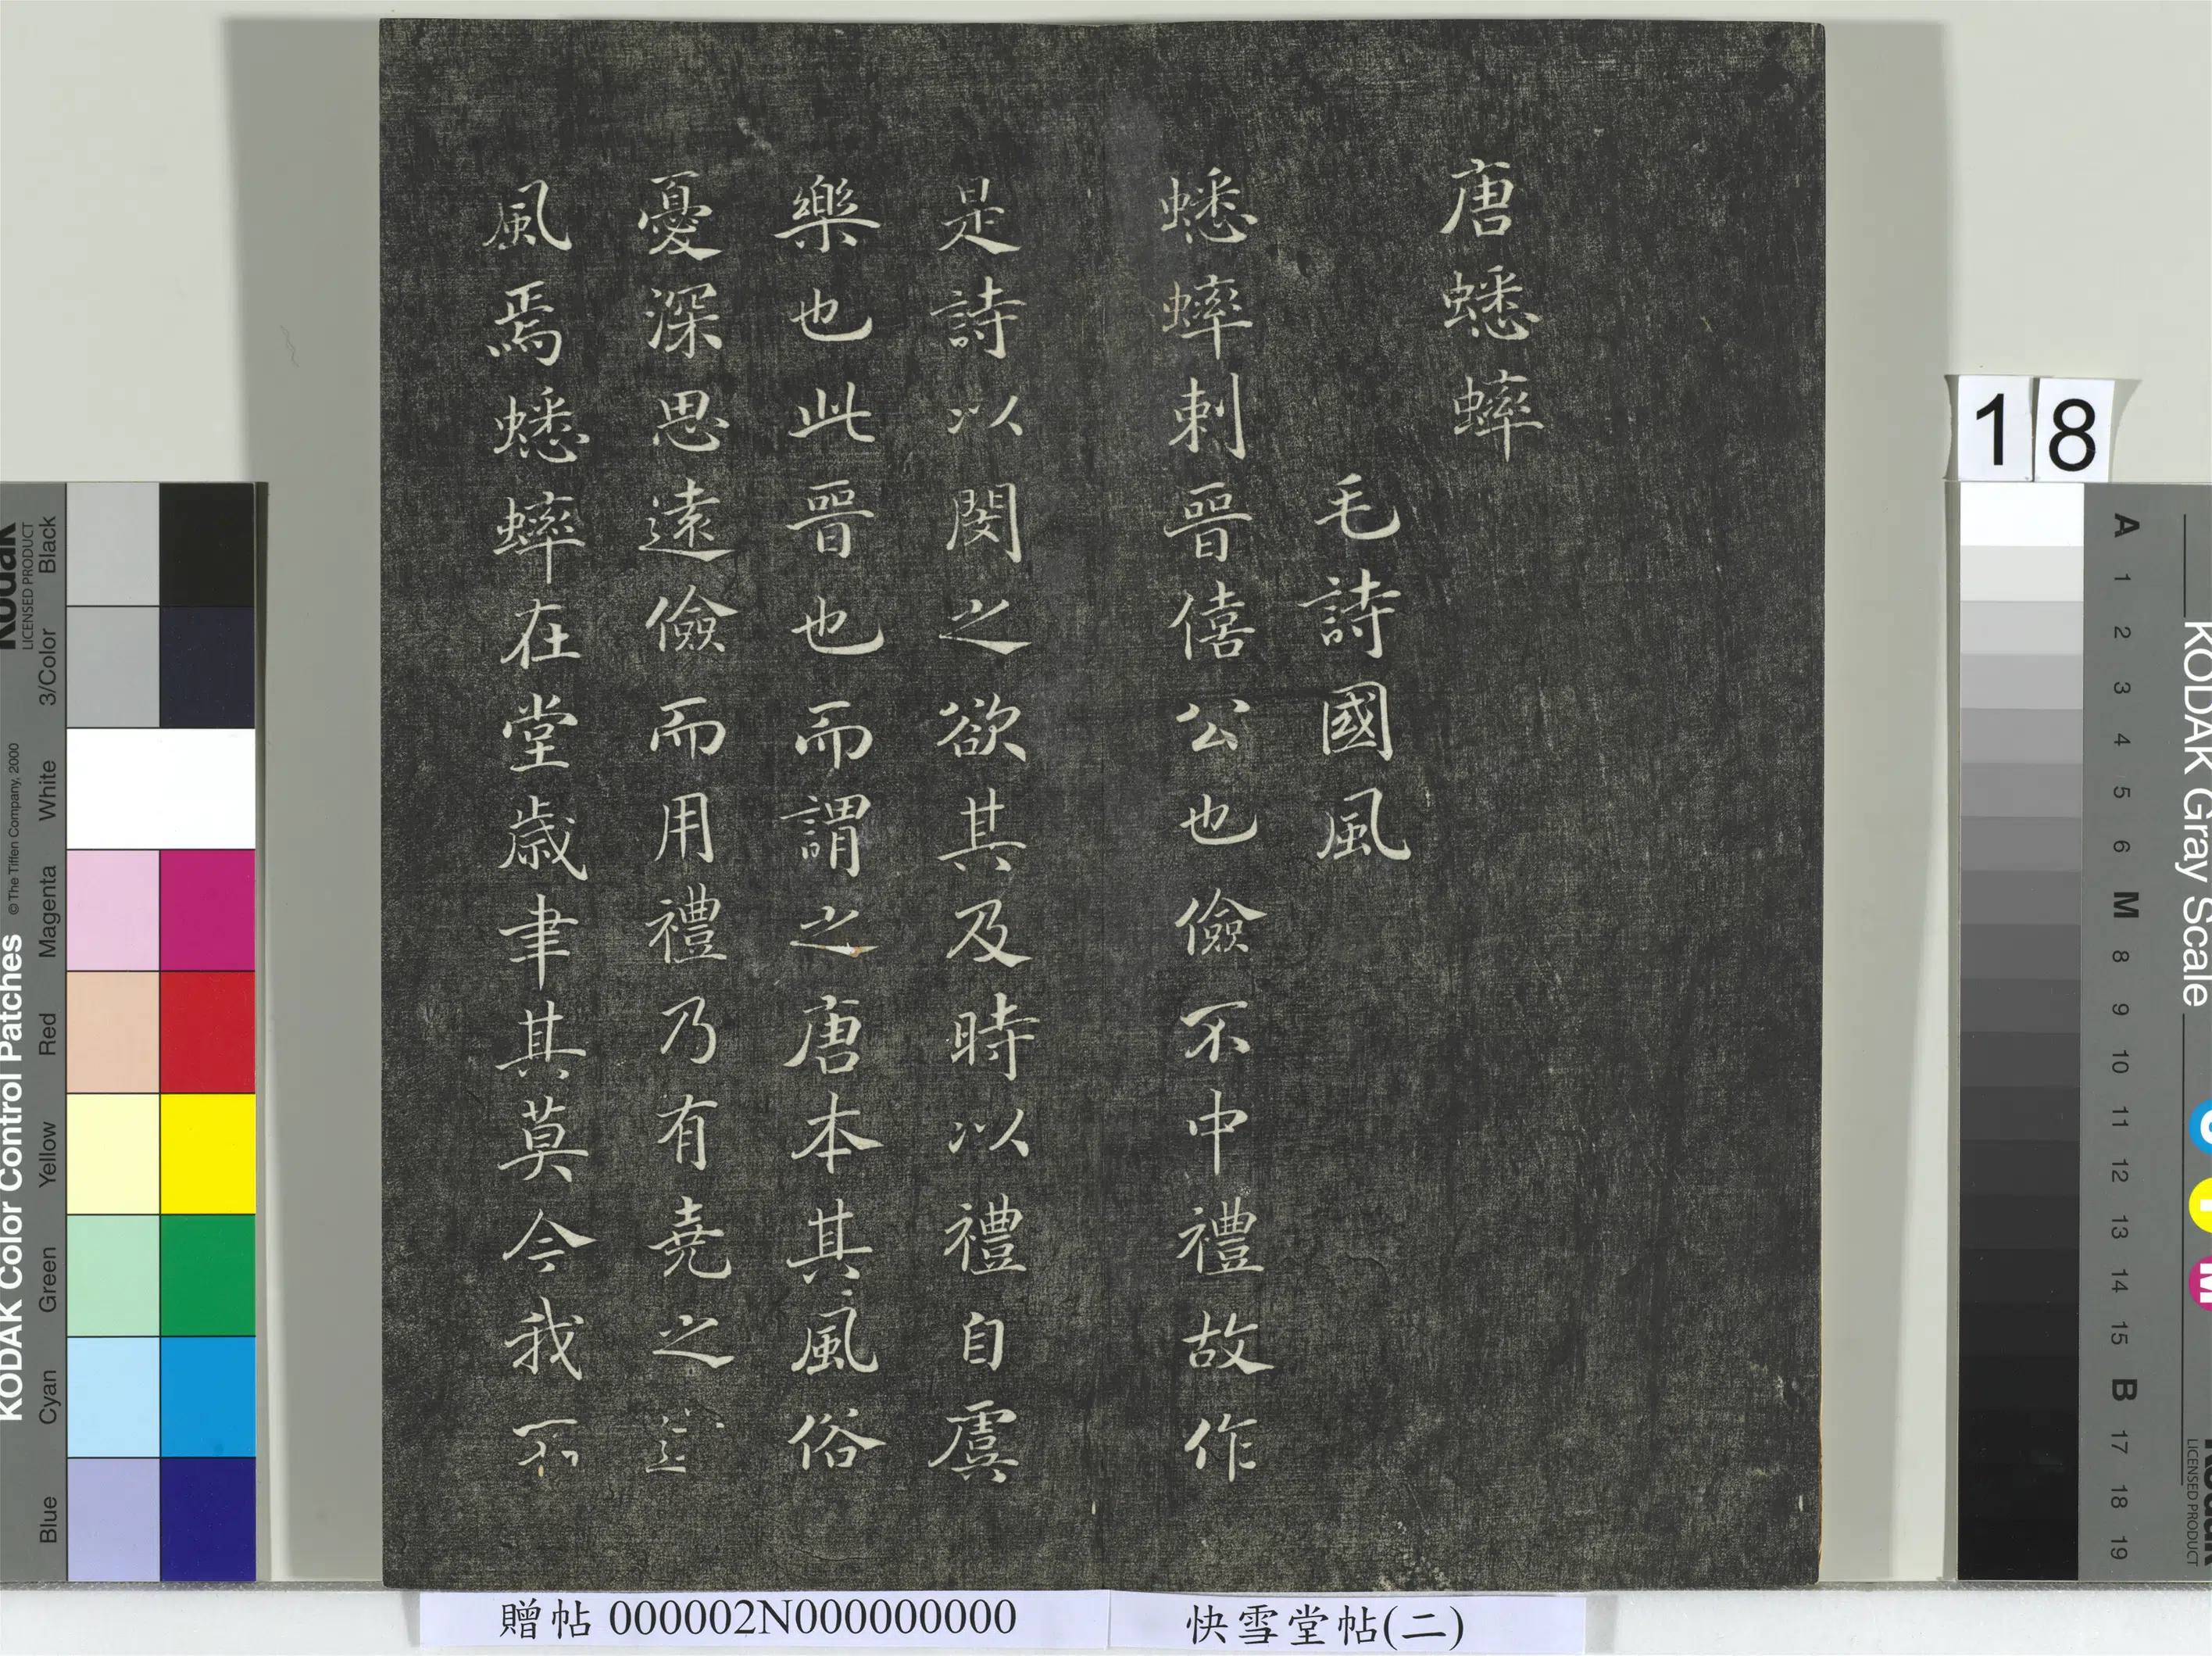 唐蟋蟀
毛詩國風
蟋蟀刺晉僖公也儉不中禮故作
是詩以閔之欲其及時以禮自虞
樂也此晉也而謂之唐本其風俗
憂深思遠儉而用禮乃有堯之
風焉蟋蟀在堂歲聿其莫今我不
贈帖 000002N000000000
快雪堂帖(二)
18
KODAK Color Control Patches
© The Tiffen Company, 2000
Kodak
LICENSED PRODUCT
Black
3/Color
White
Magenta
Red
Yellow
Green
Cyan
Blue
KODAK Gray Scale
A
1
2
3
4
5
6
M
8
9
10
11
12
13
14
15
B
17
18
19
C
Y
M
Kodak
LICENSED PRODUCT